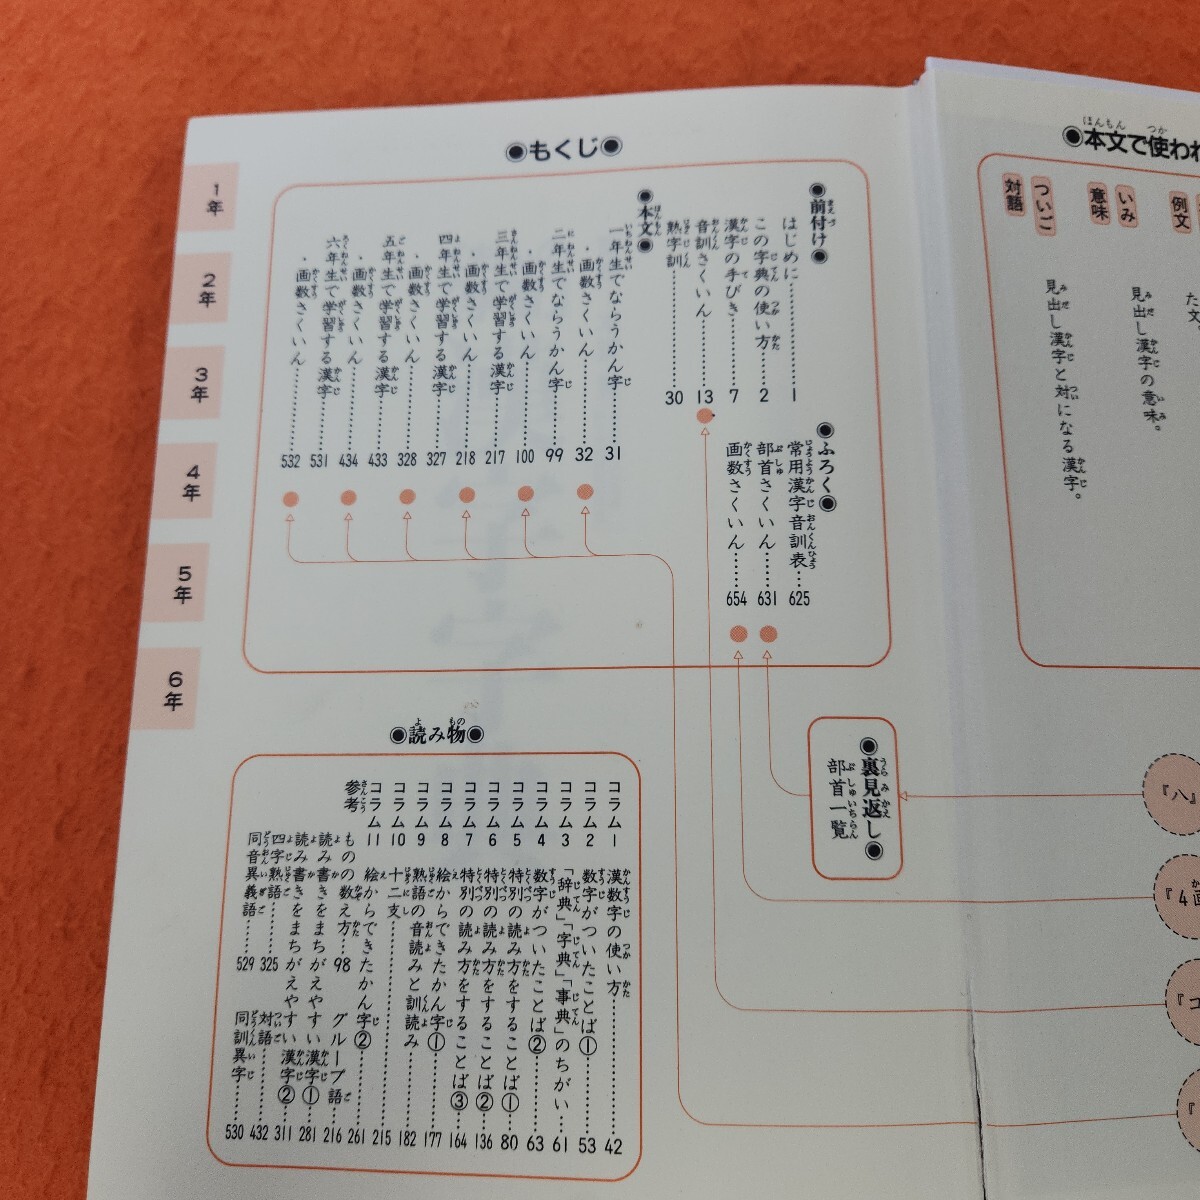 ◉もくじ◉
◉前付け◉
はじめに…………1
この字典の使い方……2
漢字の手びき……7
音訓さくいん……13
熟字訓……30
◉本文◉
一年生でならうかん字……31
・画数さくいん……32
二年生でならうかん字……99
・画数さくいん……100
三年生で学習する漢字……217
・画数さくいん……218
四年生で学習する漢字……327
・画数さくいん……328
五年生で学習する漢字……433
・画数さくいん……434
六年生で学習する漢字……531
・画数さくいん……532
◉ふろく◉
常用漢字音訓表……625
部首さくいん……631
画数さくいん……654
◉裏見返し◉
部首一覧
◉読み物◉
コラム1 漢数字の使い方……42
コラム2 数字がついたことば①……53
コラム3 「辞典」「字典」「事典」のちがい……61
コラム4 数字がついたことば②……63
コラム5 特別の読み方をすることば①……80
コラム6 特別の読み方をすることば②……136
コラム7 特別の読み方をすることば③……164
コラム8 絵からできたかん字①……177
コラム9 熟語の音読みと訓読み……182
コラム10 十二支……215
コラム11 絵からできたかん字②……261
参考 ものの数え方……98 グループ語……216
読み書きをまちがえやすい漢字①……281
読み書きをまちがえやすい漢字②……311
四字熟語……325 対語……432
同音異義語……529 同訓異字……530
1年
2年
3年
4年
5年
6年
◉本文で使われ
例文
た文
いみ
意味
見出し漢字の意味。
ついご
対語
見出し漢字と対になる漢字。
『八』
『4画
『コ
『